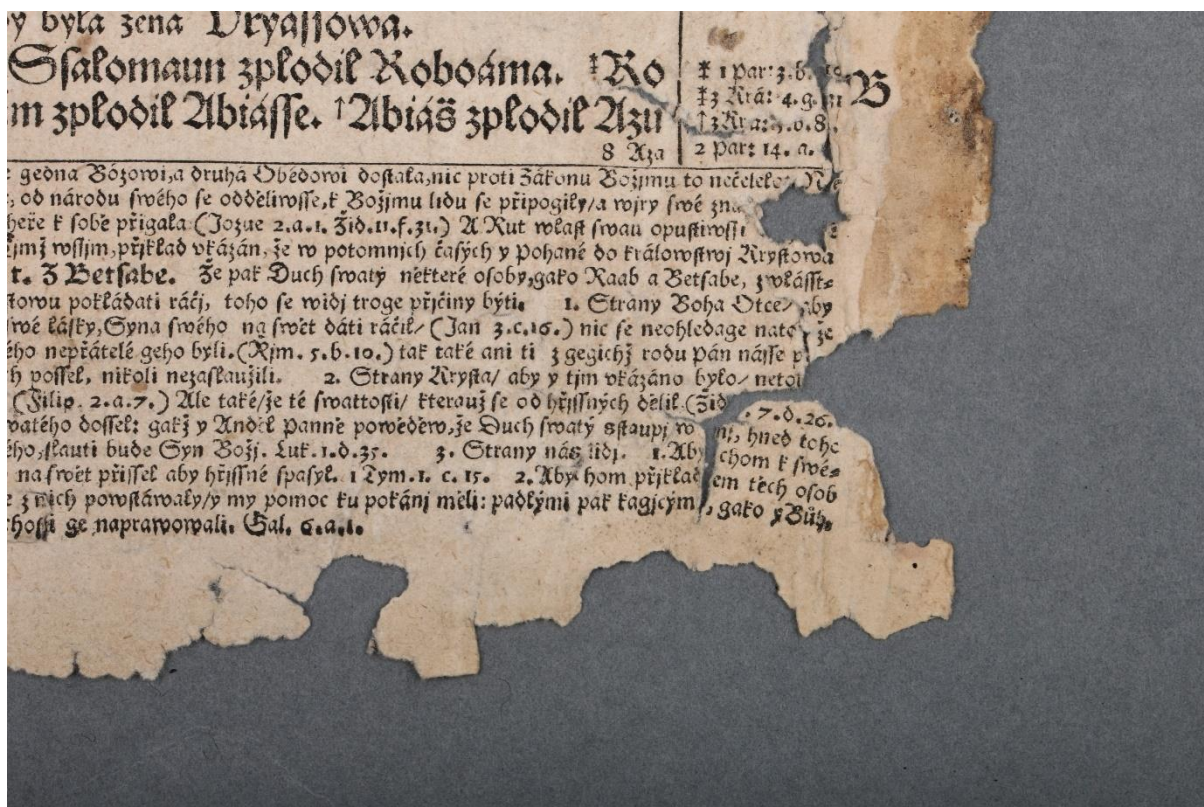 y byla žena Uryássowa.
Ssalomaun zplodil Roboáma. ‡Ro
im zplodil Abiásse. †Abiáš zplodil Azu
8 Aza
‡ 1 Par: 3. b.
‡ 3 Krá: 4. g. 21
† 3 Kra: 8.
2 Par: 14. a.
B
gedna Bózowi, a druhá Obédowi dostala, nic proti Zákonu Božjmu to nečelelo:
, od národu swého se odděliwsse, k Božjmu lidu se připogily/ a wjry swé
k sobě přigala (Jozue 2.a.1. Žid.11.f.31.) A Rut wlast swau opustiwssi
wssjm, přjklad vkázán, že w potomnjch časých y Pohané do králowstwj Krystowa
t. Z Betsabe. Že pak Duch swatý některé osoby, gako Raab a Betsabe, zwlásst-
pokládati ráčj, toho se widj troge přjčiny býti. 1. Strany Boha Otce/ aby
swé lásky, Syna swého na swět dáti ráčil/ (Jan 3.c.16.) nic se neohledage nato že
nepřátelé geho byli. (Řjm. 5.b.10.) tak také ani ti z gegichž rodu Pán násse
possel, nikoli nezaslaužili. 2. Strany Krysta/ aby y tjm vkázáno bylo/
(Filip. 2.a.7.) Ale také/ že té swattosti/ kterauž se od hřjssných dělil (Žid. 7.d.26.
dossel: gakž y Anděl Panně powěděw, že Duch swatý sstaupj w ni, hned tohc
slauti bude Syn Božj. Luk.1.d.35. 3. Strany nás lidj. 1. Abychom k swé-
na swět přissel aby hřjssné spasyl. 1 Tym.1. c. 15. 2. Abychom přjkladem těch osob
z nich powstáwaly/ y my pomoc ku pokánj měli: padlými pak kagjcým, gako y Bůh,
ge naprawowali. Gal. 6.a.1.